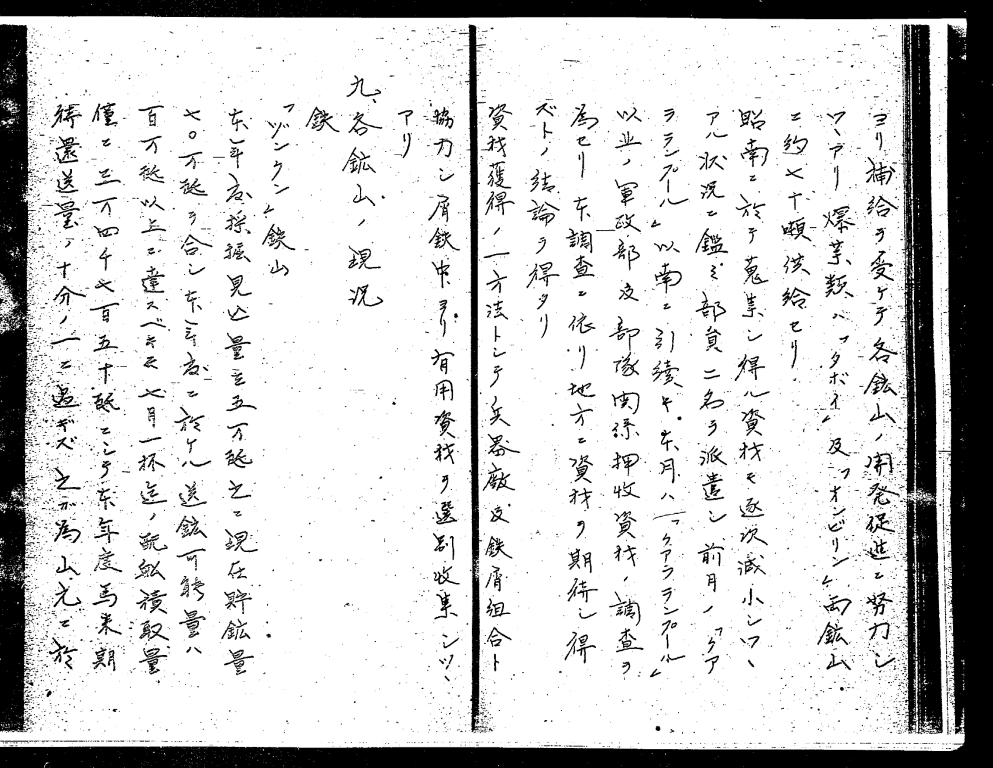 ヨリ補給ヲ受ケテ各鉱山ノ開発促進ニ努力シ
ツヽアリ爆薬類ハ「タボイ」及「オンビリン」両鉱山
ニ約七十噸供給セリ
昭南ニ於テ蒐集シ得ル資材モ逐次減小シツヽ
アル状況ニ鑑ミ部員二名ヲ派遣シ前月ノ「クア
ラランプール」以南ニ引続キ本月ハ「クアラランプール」
以北ノ軍政部及部隊関係押收資材ノ調査ヲ
為セリ本調査ニ依リ地方ニ資材ヲ期待シ得
ズトノ結論ヲ得タリ
資材獲得ノ一方法トシテ兵器廠及鉄屑組合ト
協力シ屑鉄中ヨリ有用資材ヲ選別收集シツヽ
アリ
九、各鉱山ノ現況
鉄
「ヅングン」鉄山
本年度採掘見込量五万瓲之ニ現在貯鉱量
七〇万瓲ヲ合シ本年度ニ於ケル送鉱可能量ハ
百万瓲以上ニ達スベキモ七月一杯迄ノ配船積取量
僅ニ三万四千七百五十瓲ニシテ本年度馬来期
待還送量ノ十分ノ一ニ過ギズ之ガ為山元ニ於